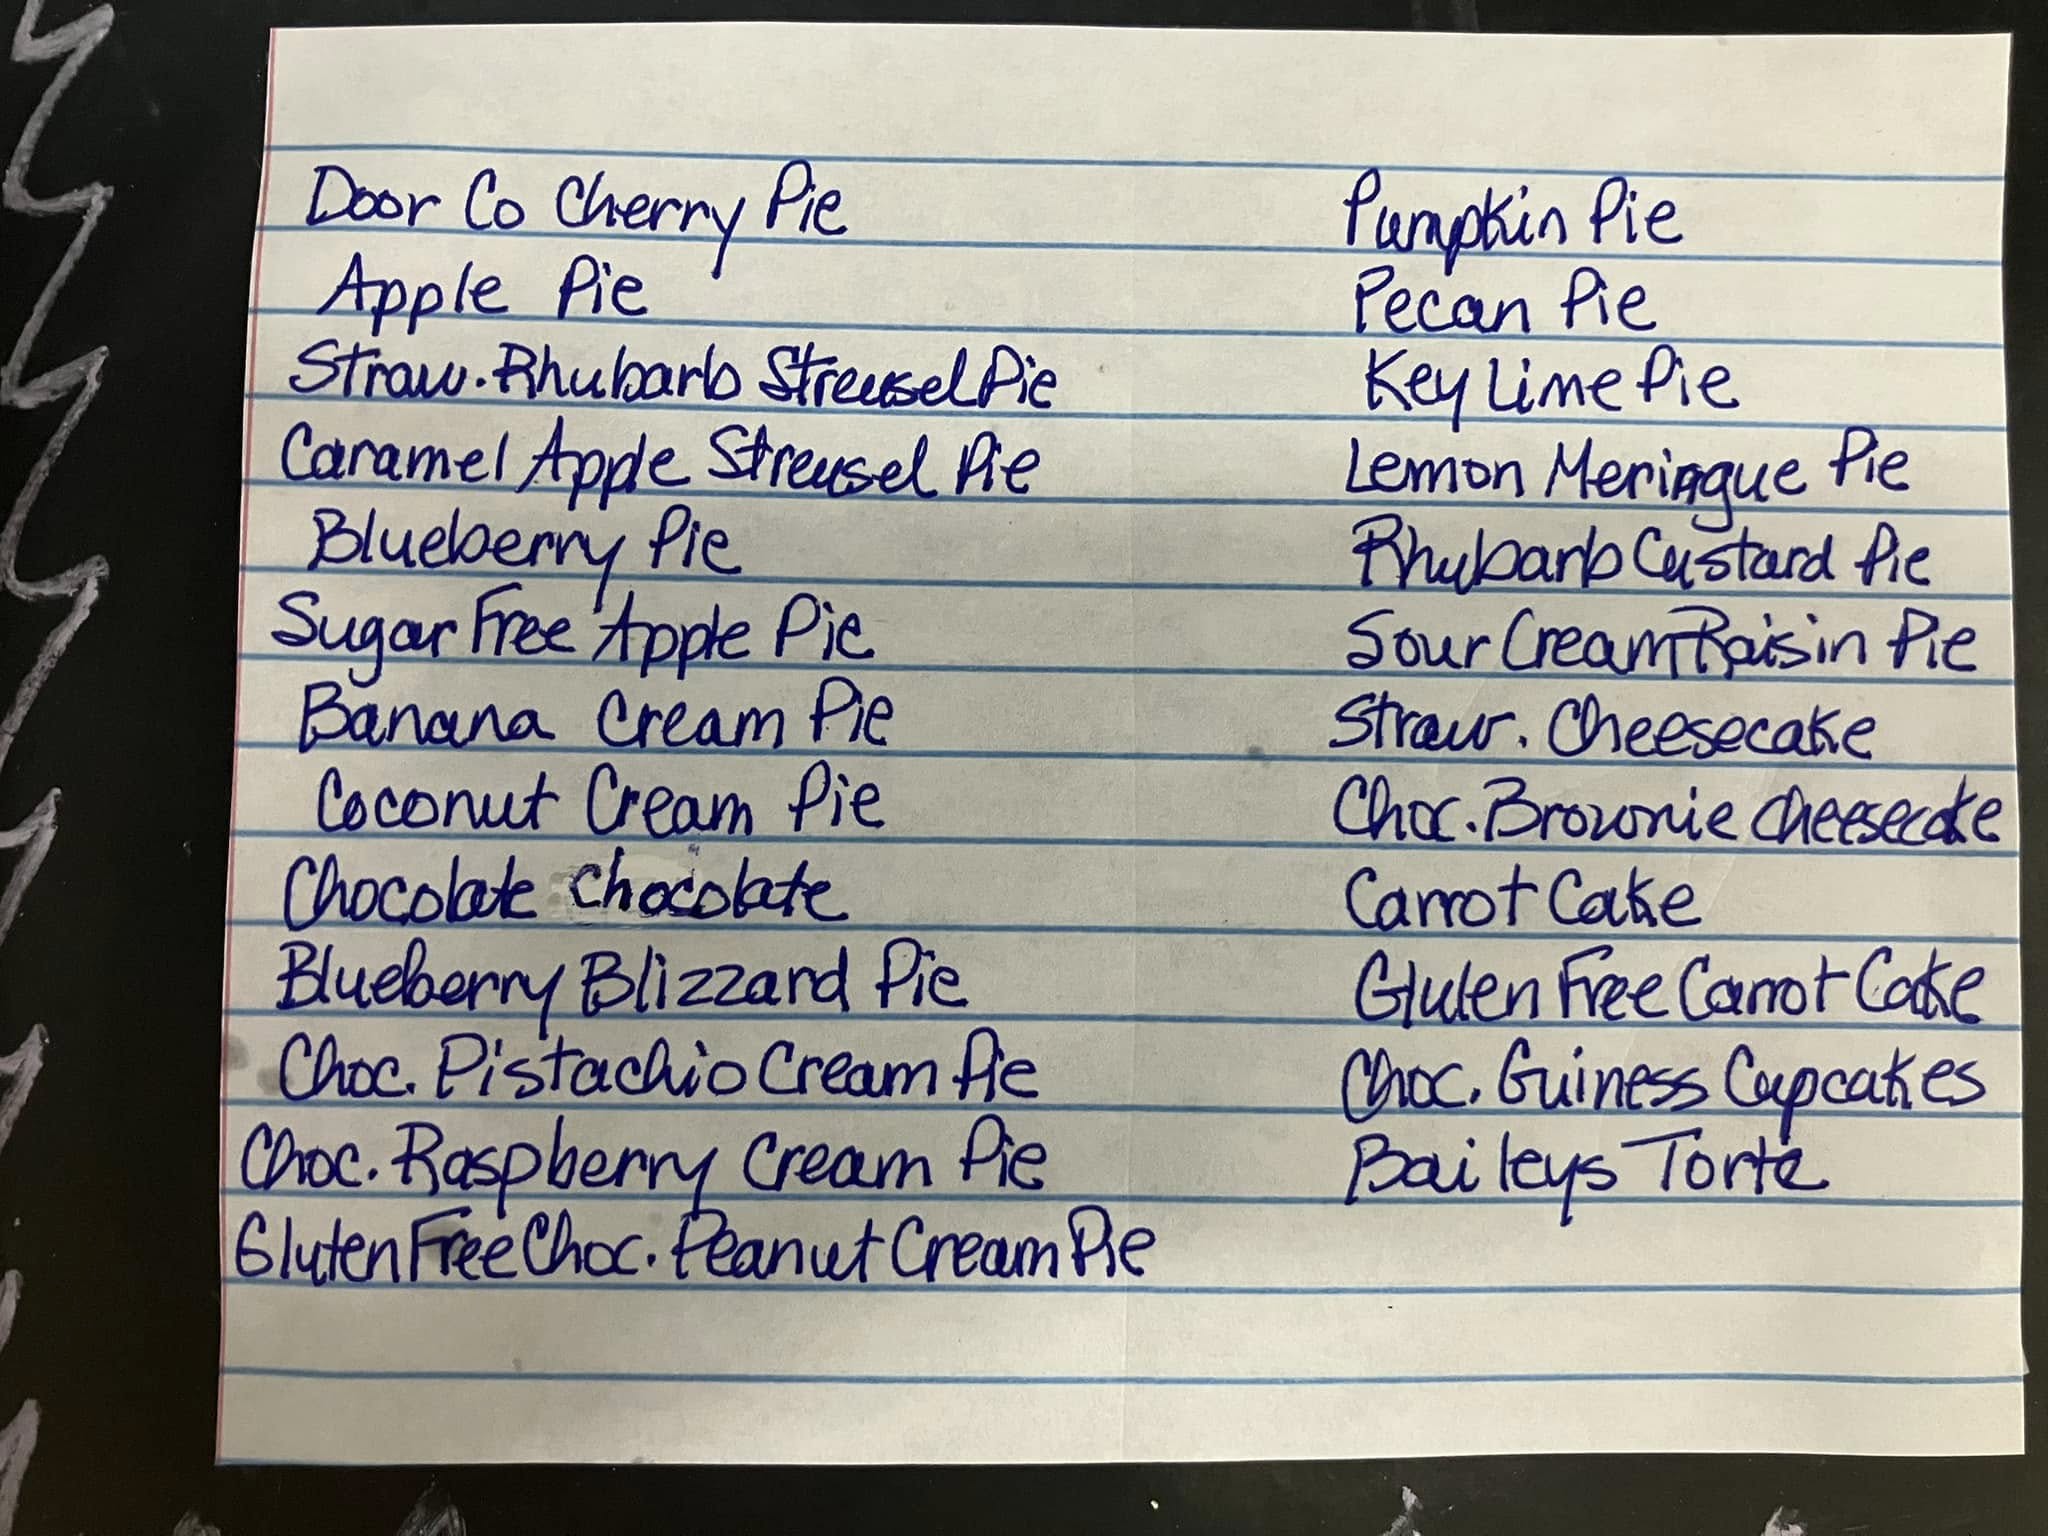 Door Co Cherry Pie
Apple Pie
Straw. Rhubarb Streusel Pie
Caramel Apple Streusel Pie
Blueberry Pie
Sugar Free Apple Pie
Banana Cream Pie
Coconut Cream Pie
Chocolate Chocolate
Blueberry Blizzard Pie
Choc. Pistachio Cream Pie
Choc. Raspberry Cream Pie
Gluten Free Choc. Peanut Cream Pie
Pumpkin Pie
Pecan Pie
Key Lime Pie
Lemon Meringue Pie
Rhubarb Custard Pie
Sour Cream Raisin Pie
Straw. Cheesecake
Choc. Brownie Cheesecake
Carrot Cake
Gluten Free Carrot Cake
Choc. Guiness Cupcakes
Baileys Torte